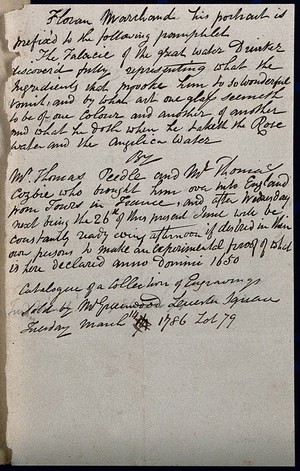 Floran Marchand his portrait is
prefix'd to the following pamphlet
The Falacie of the great water Drinker
discovered fully representing what the
Ingredients that provoke him to so wonderful
vomit, and by what art one glass seemeth
to be of one Colour and another of another
and what he doth when he taketh the Rose
water and the Angelica Water
By
Mr. Thomas Peedle and Mr. Thomas
Cozbie who brought him over into England
from Tours in France, and after Wednesday
next being the 26th of this present June will be
constantly ready every afternoon if desired in their
own persons to make an experimental proof of what
is here declared anno domini 1650
Catalogue of a Collection of Engravings
Sold by Mr Greenwood Leicester Square
Tuesday March 14 1786 Lot 79